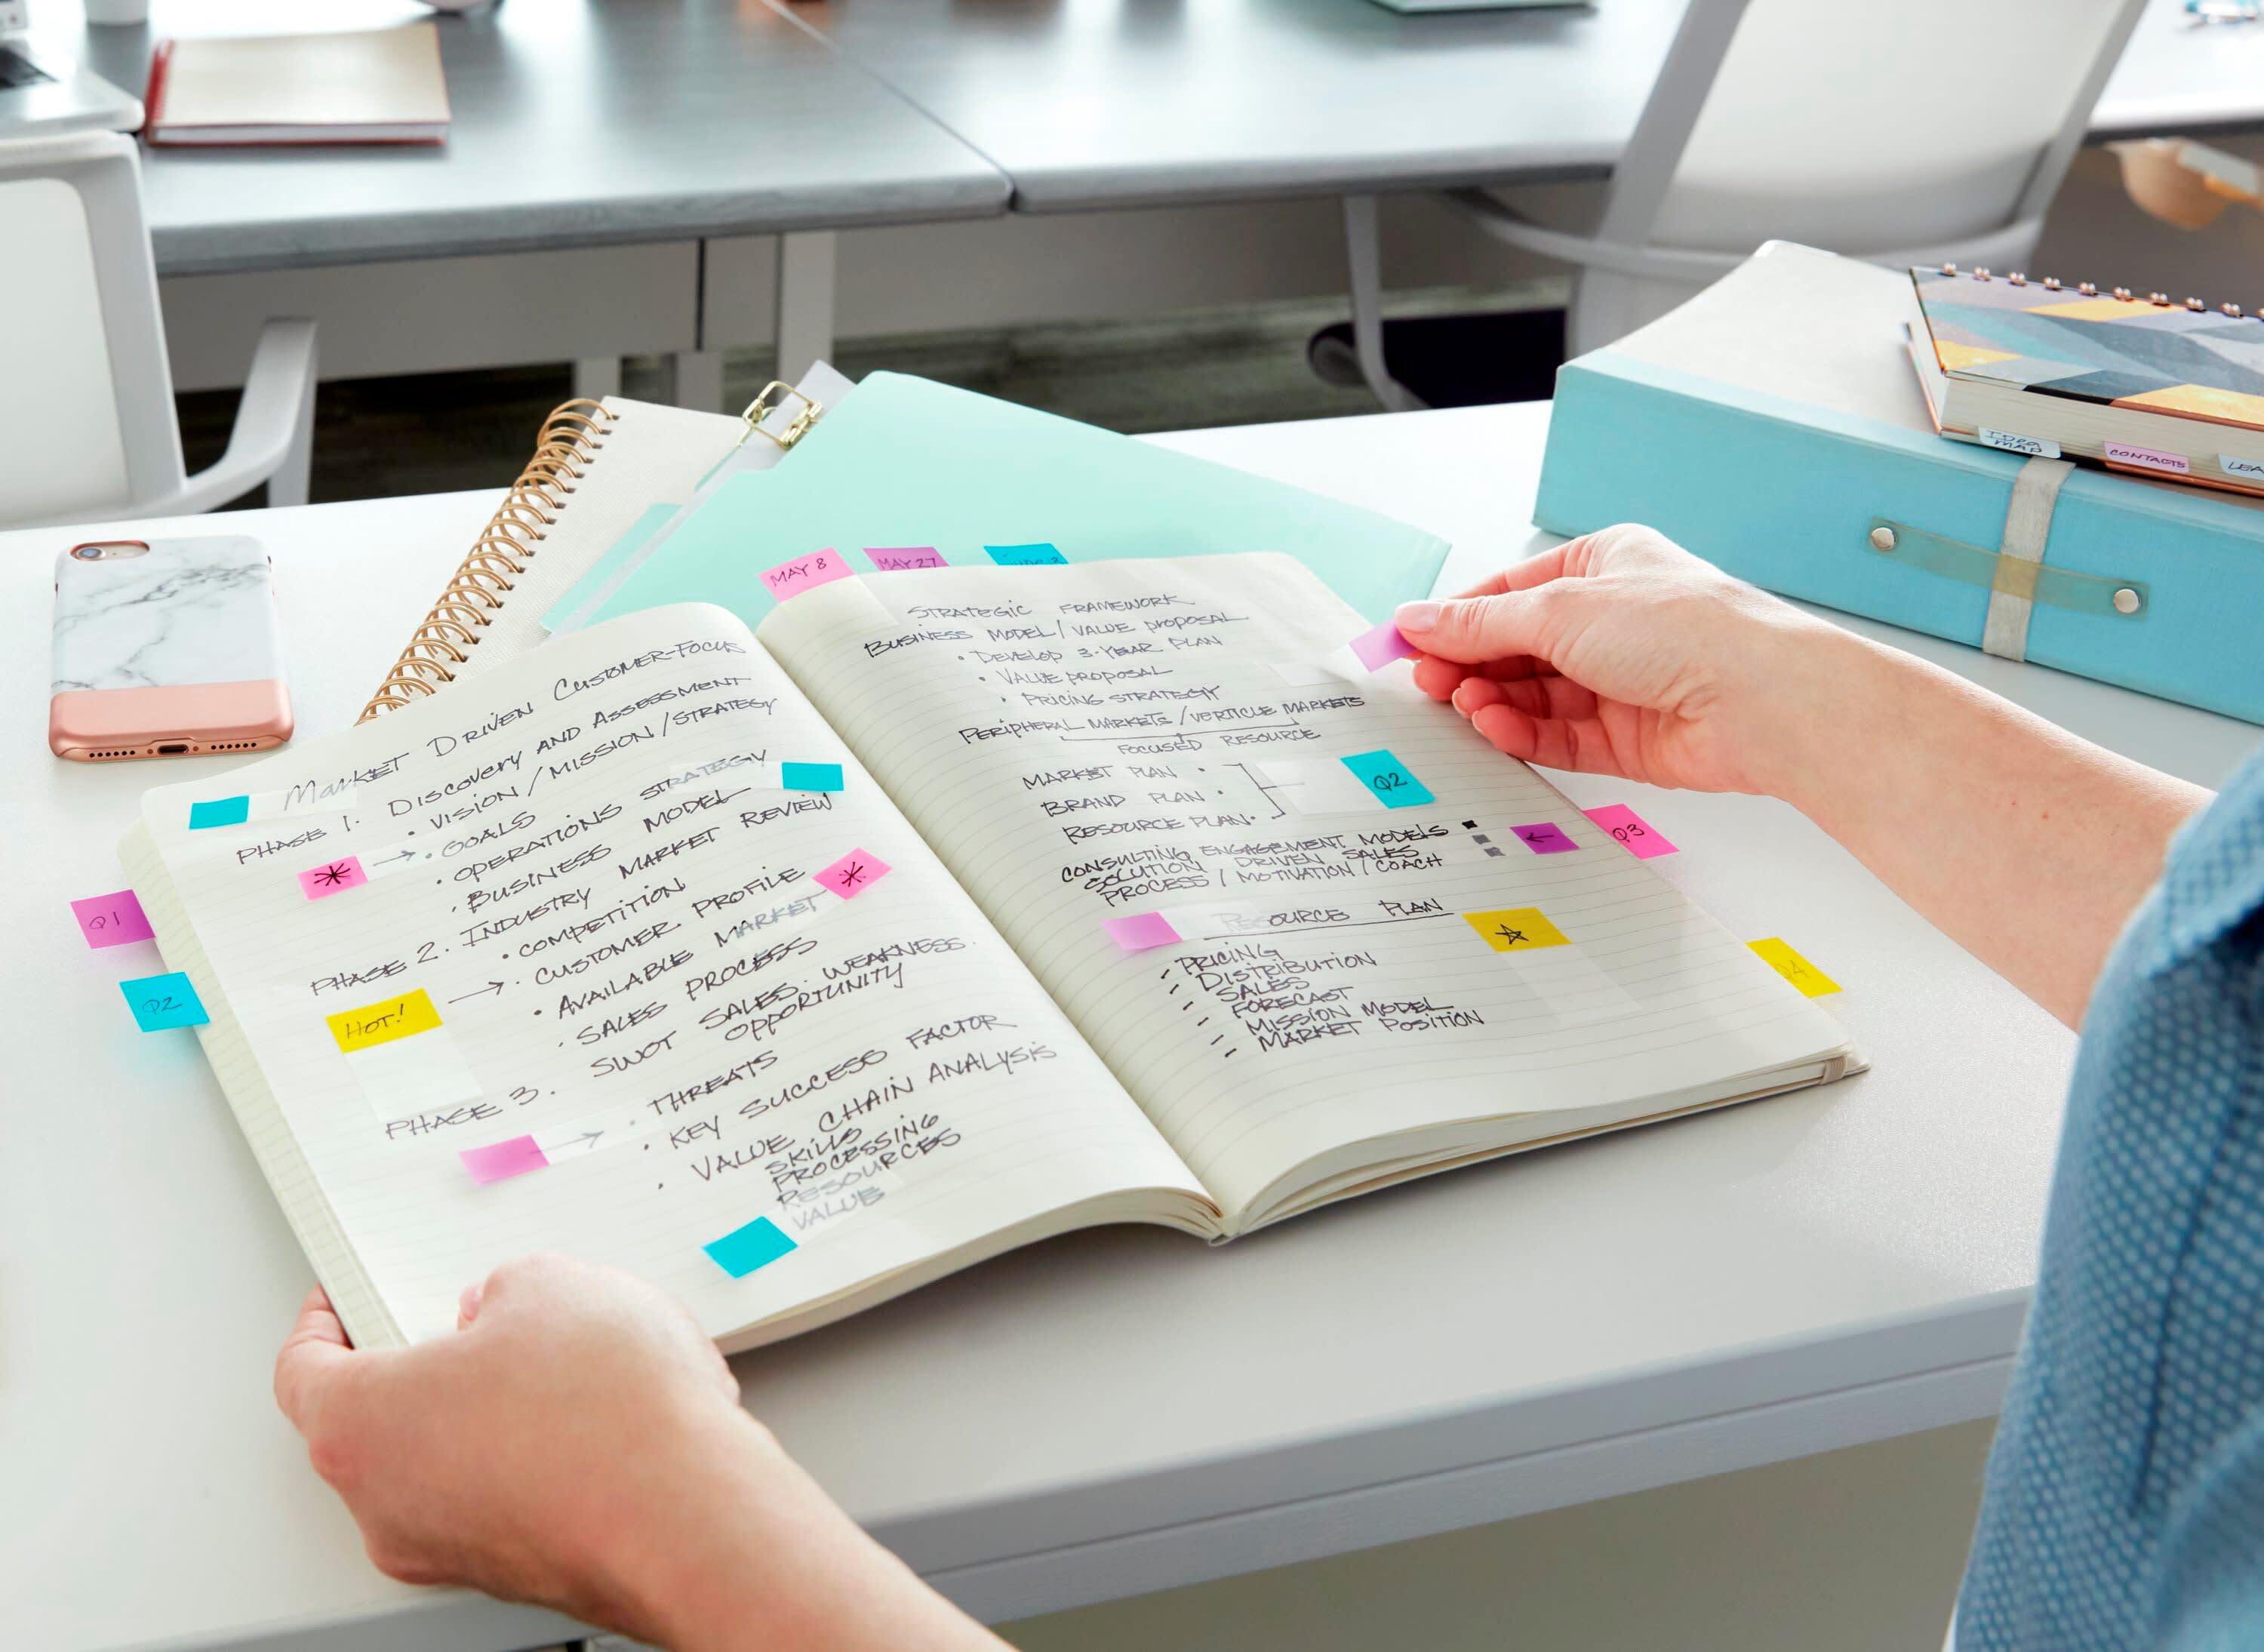 MAY 8
MAY 27
Market Driven Customer-Focus
PHASE 1. Discovery AND ASSESSMENT
• VISION / MISSION / STRATEGY
→ • GOALS
• OPERATIONS STRATEGY
• BUSINESS MODEL
PHASE 2. INDUSTRY MARKET REVIEW
• COMPETITION
→ • CUSTOMER PROFILE
HOT!
• AVAILABLE MARKET
• SALES PROCESS
PHASE 3. SWOT SALES. WEAKNESS.
OPPORTUNITY
→ • THREATS
• KEY SUCCESS FACTOR
• VALUE CHAIN ANALYSIS
SKILLS
PROCESSING
RESOURCES
VALUE
Q1
Q2
STRATEGIC FRAMEWORK
BUSINESS MODEL / VALUE PROPOSAL
• DEVELOP 3-YEAR PLAN
• VALUE PROPOSAL
• PRICING STRATEGY
PERIPHERAL MARKETS / VERTICLE MARKETS
FOCUSED RESOURCE
MARKET PLAN •
BRAND PLAN •
RESOURCE PLAN •
Q2
CONSULTING ENGAGEMENT MODELS
SOLUTION DRIVEN SALES
PROCESS / MOTIVATION / COACH
←
Q3
RESOURCE PLAN
- PRICING
- DISTRIBUTION
- SALES
- FORECAST
- MISSION MODEL
- MARKET POSITION
Q4
IDEA
MAP
CONTACTS